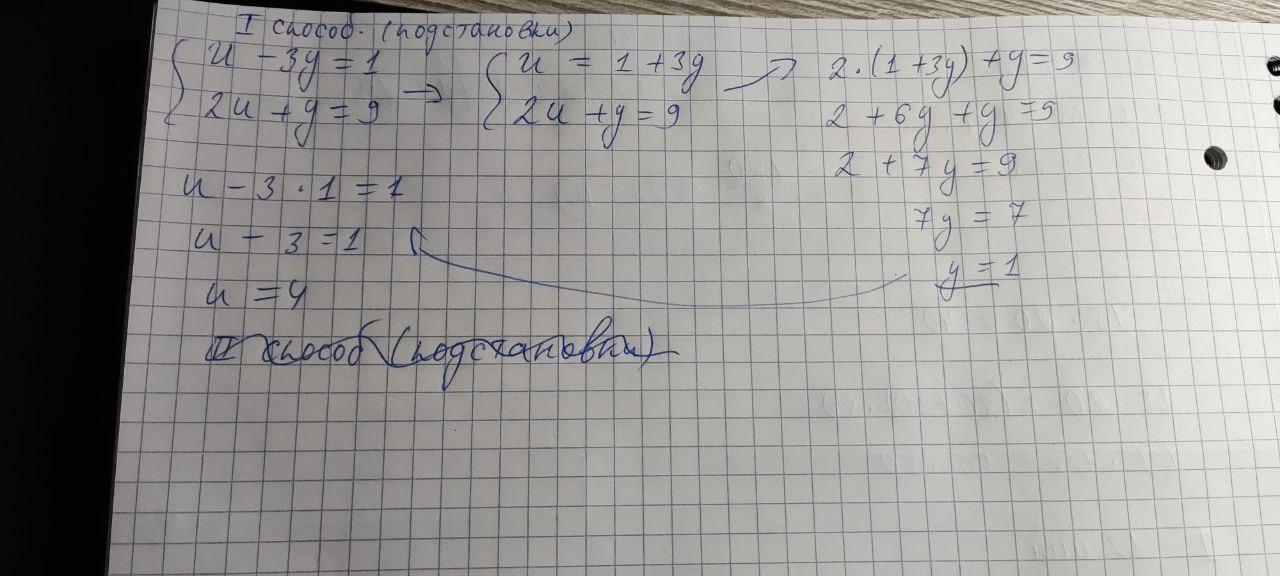 I способ. (подстановки)
{ u - 3y = 1
2u + y = 9 →
{ u = 1 + 3y
2u + y = 9 →
2·(1 + 3y) + y = 9
2 + 6y + y = 9
2 + 7y = 9
7y = 7
y = 1
u - 3 · 1 = 1
u - 3 = 1
u = 4
II способ (подстановки)